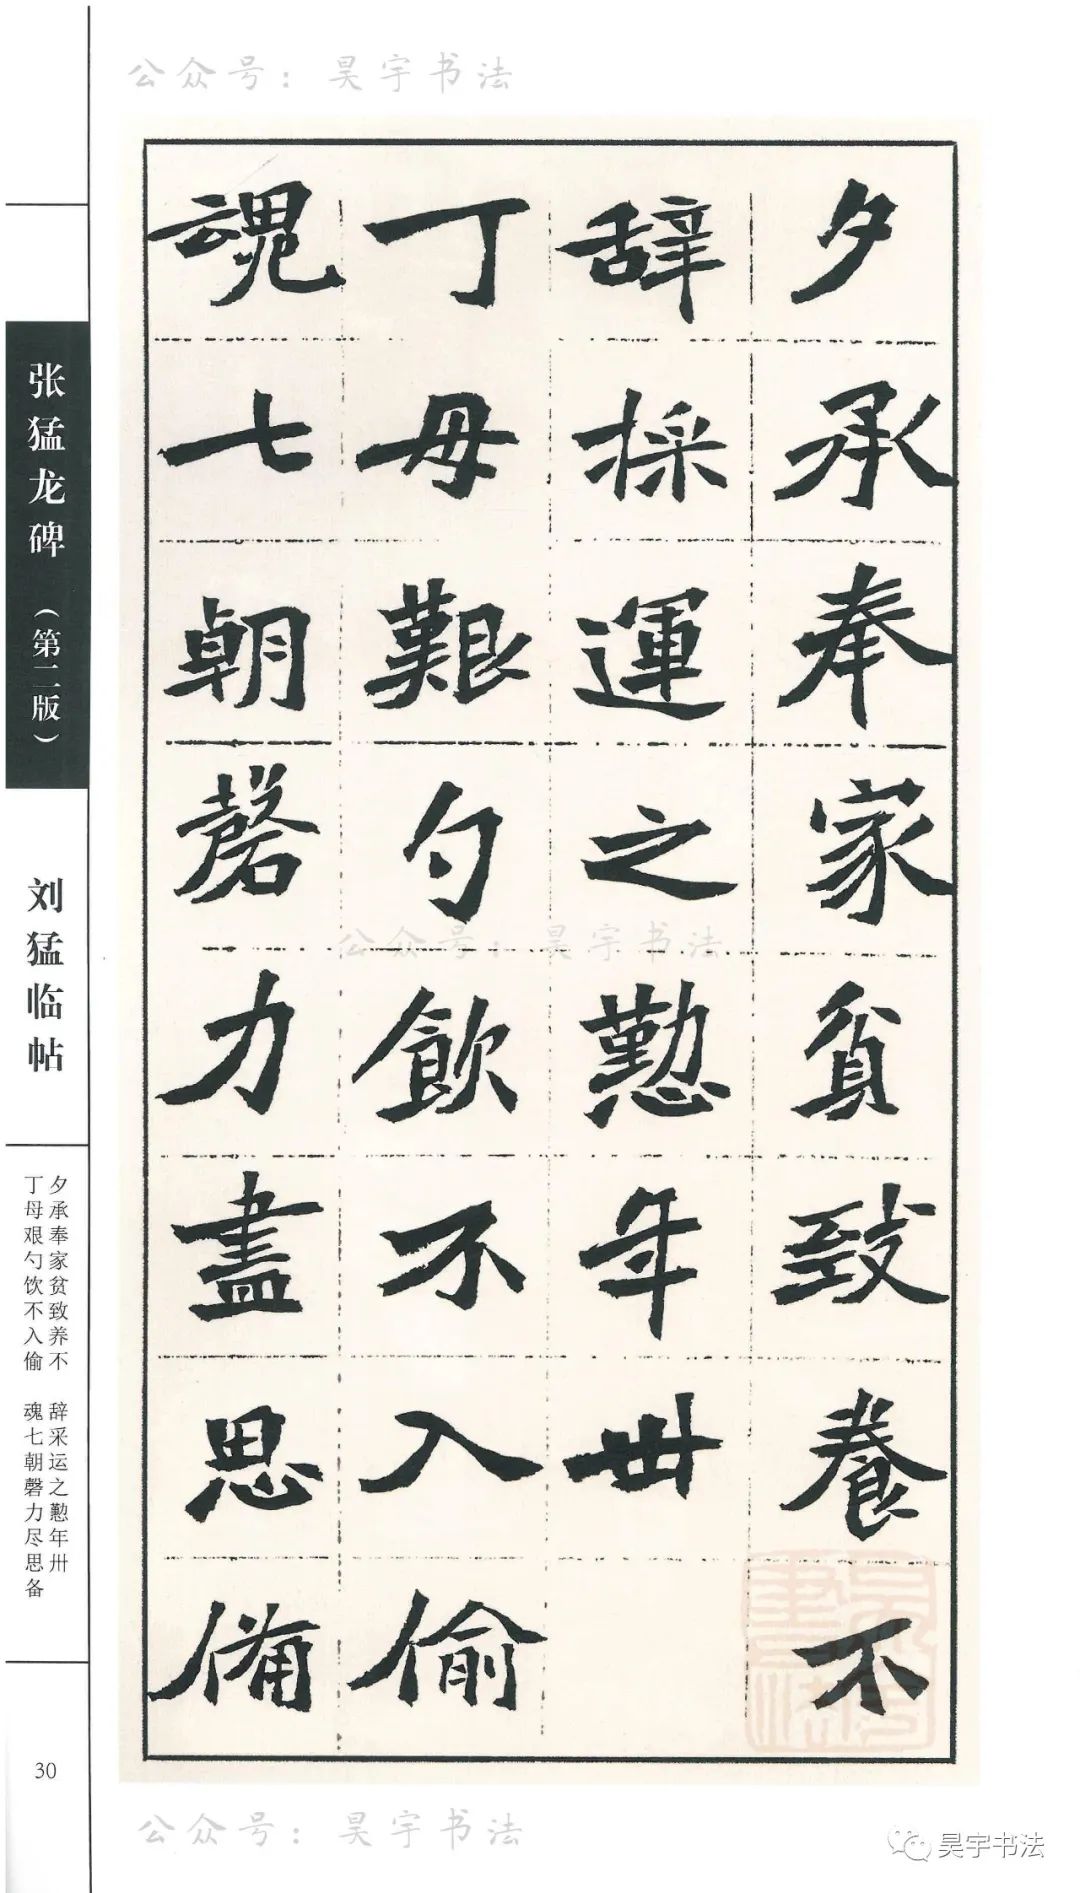 公众号：昊宇书法
夕承奉家贫致養不
辞採運之懃年卅
丁母艱勺飲不入偷
魂七朝磬力盡思備
公众号：昊宇书法
张猛龙碑（第二版）
刘猛临帖
夕承奉家贫致养不 辞采运之懃年卅
丁母艰勺饮不入偷 魂七朝磬力尽思备
30
公众号：昊宇书法
昊宇书法